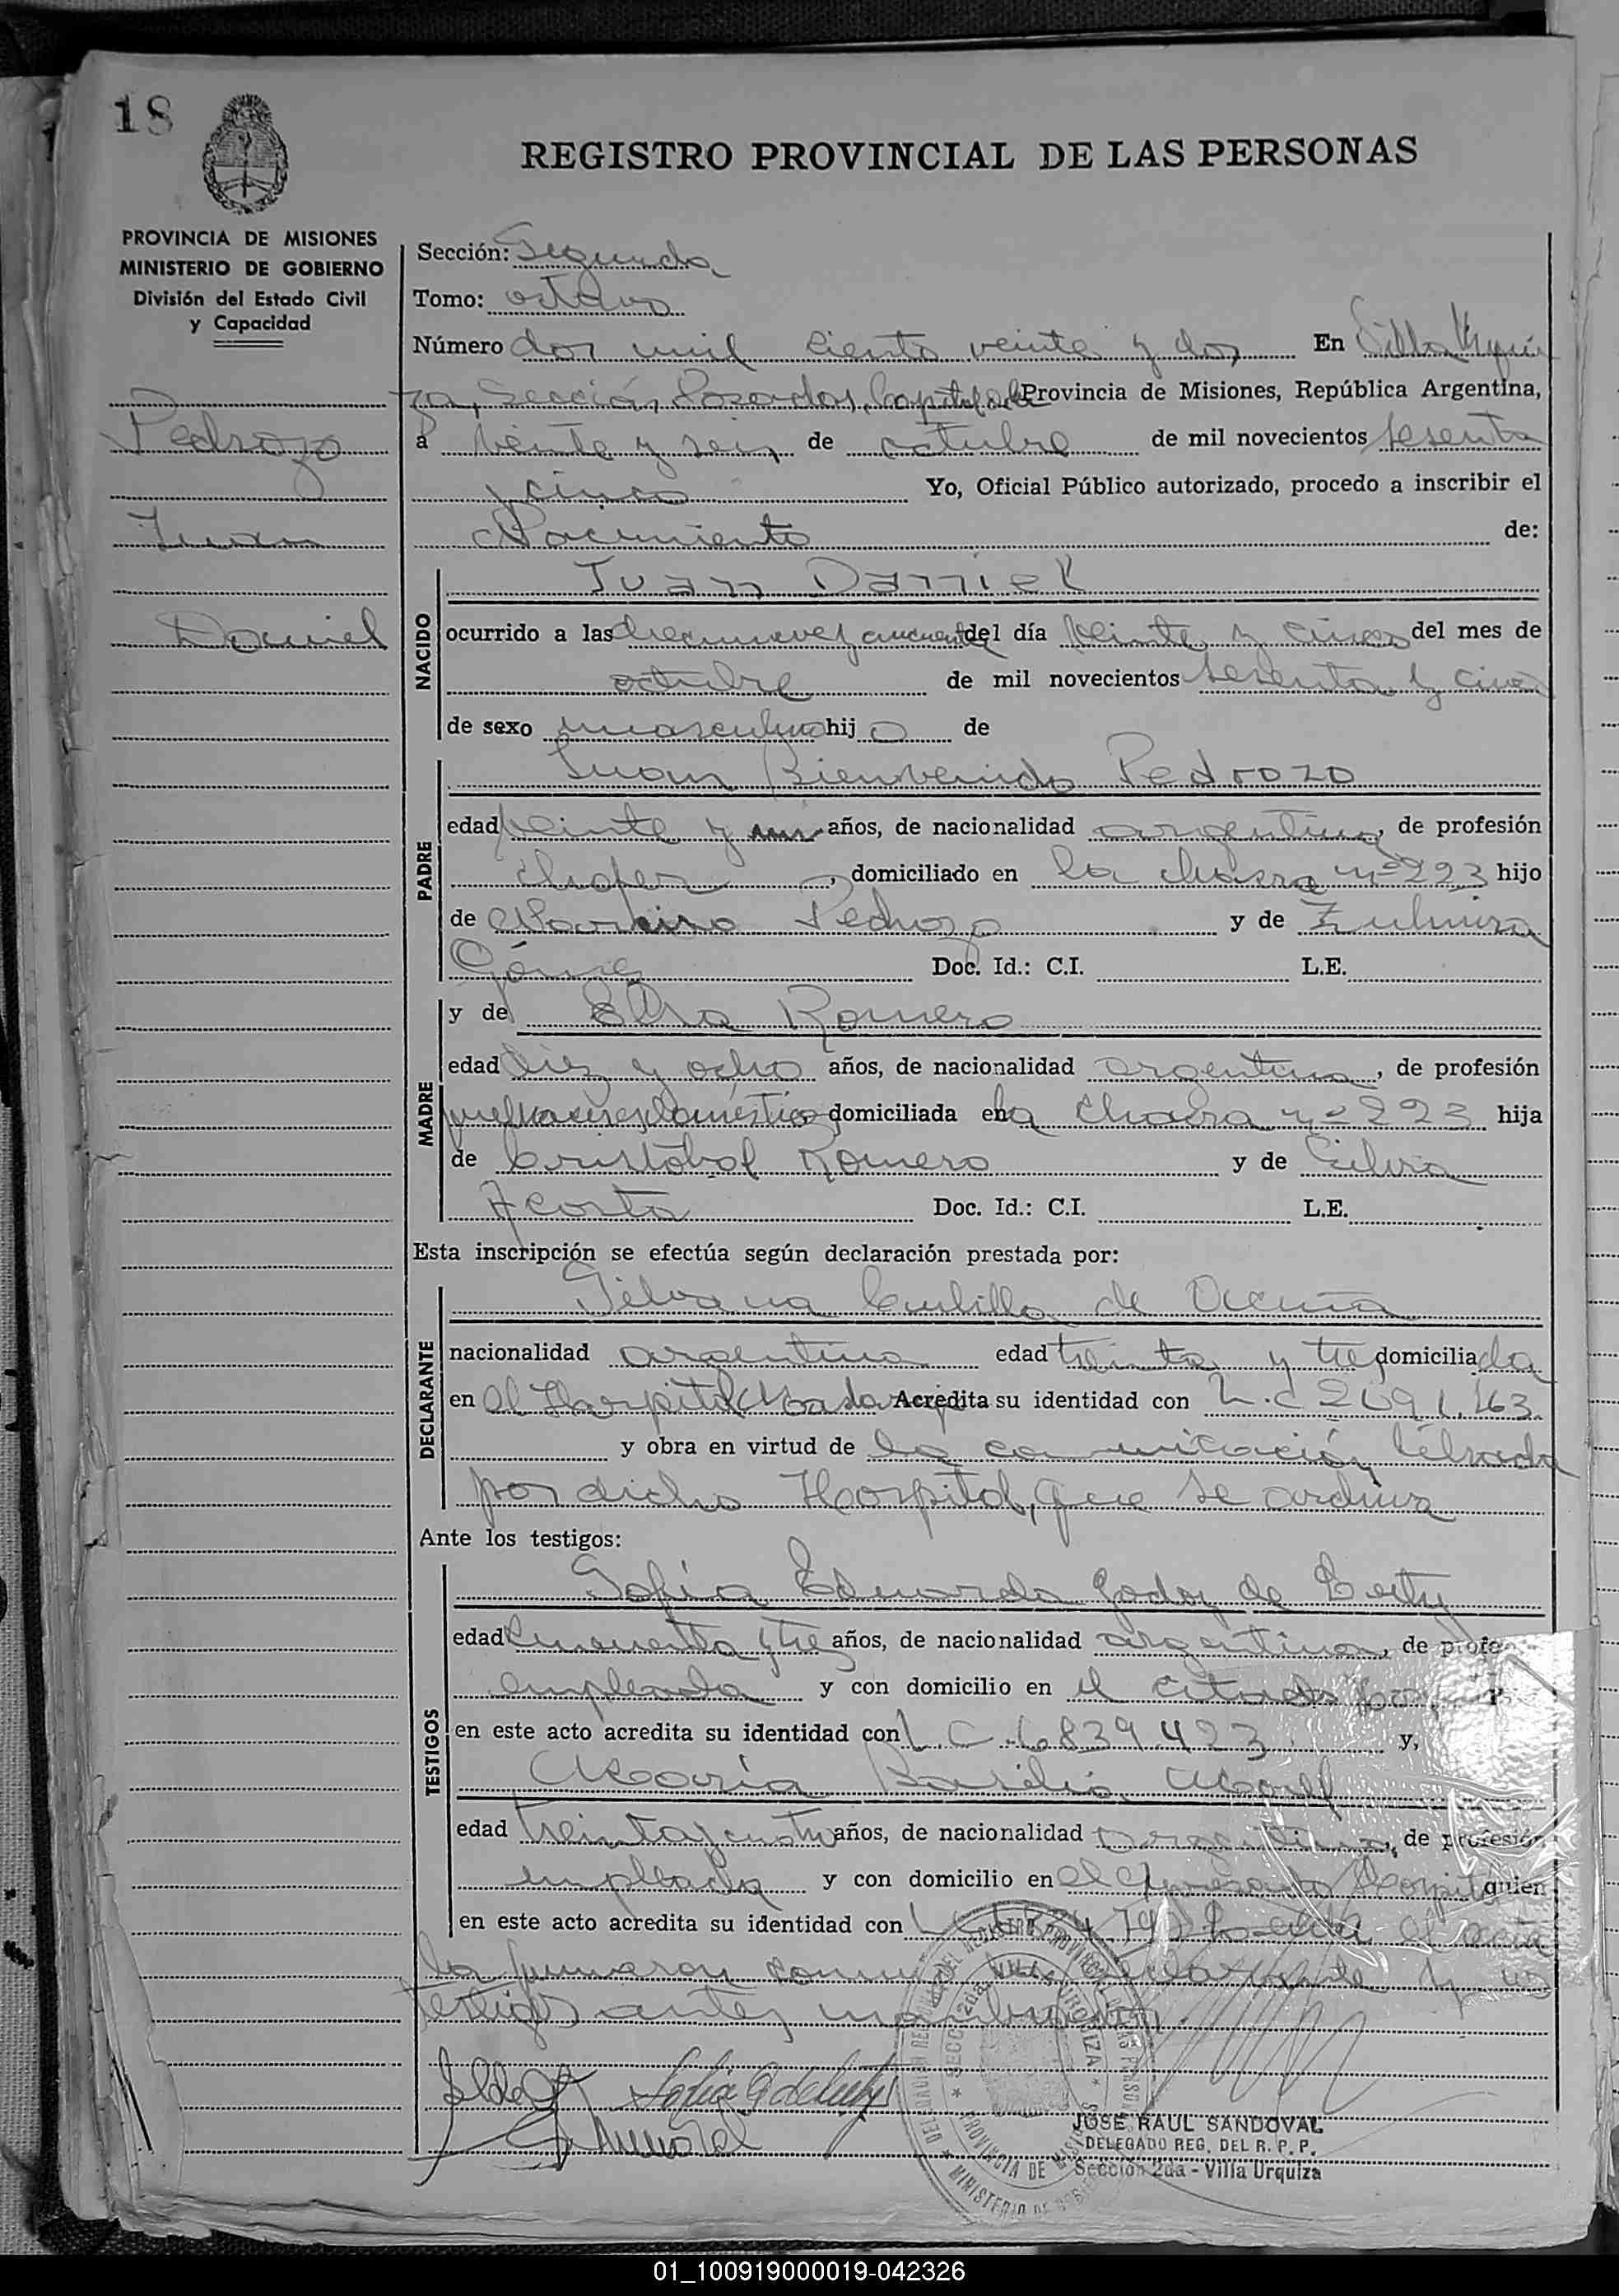 18
REGISTRO PROVINCIAL DE LAS PERSONAS
PROVINCIA DE MISIONES
MINISTERIO DE GOBIERNO
División del Estado Civil
y Capacidad
Pedrozo
Juan
Daniel
Sección: Segunda
Tomo: octavo
Número dos mil ciento veinte y dos En Villa Urqui
za, Sección Posadas, Capital de Provincia de Misiones, República Argentina,
a veinte y seis de octubre de mil novecientos sesenta
y cinco Yo, Oficial Público autorizado, procedo a inscribir el
Nacimiento de:
NACIDO
Juan Daniel
ocurrido a las diecinueve y cincuenta del día veinte y cinco del mes de
octubre de mil novecientos sesenta y cinco
de sexo masculino hij o de
PADRE
Juan Bienvenido Pedrozo
edad veinte y años, de nacionalidad argentina, de profesión
chofer, domiciliado en la chacra nº 223 hijo
de Pedrozo y de Zulmira
Gómez Doc. Id.: C.I. L.E.
MADRE
y de Elsa Romero
edad diez y ocho años, de nacionalidad argentina, de profesión
domiciliada en la chacra nº 223 hija
de Cristóbal Romero y de Silvia
Acosta Doc. Id.: C.I. L.E.
Esta inscripción se efectúa según declaración prestada por:
DECLARANTE
de
nacionalidad argentina edad treinta y tres domiciliada
en el Hospital Acredita su identidad con L.C.
y obra en virtud de la comunicación librada
por dicho Hospital, que se archiva
Ante los testigos:
TESTIGOS
Sofía Eduarda Godoy de
edad cincuenta y tres años, de nacionalidad argentina, de profe
empleada y con domicilio en el citado
en este acto acredita su identidad con L.C. 6839423 y,
María Basilia
edad treinta y cuatro años, de nacionalidad argentina, de profesión
empleada y con domicilio en el expresado Hospital quien
en este acto acredita su identidad con L.C. el acta
la firmaron declarante y los
testigos antes
DELEGACIÓN DEL REGISTRO PROVINCIAL DE LAS PERSONAS
SECC. 2da. VILLA URQUIZA
PROVINCIA DE MISIONES
MINISTERIO DE GOBIERNO
JOSE RAUL SANDOVAL
DELEGADO REG. DEL R. P. P.
Sección 2da - Villa Urquiza
01_100919000019-042326